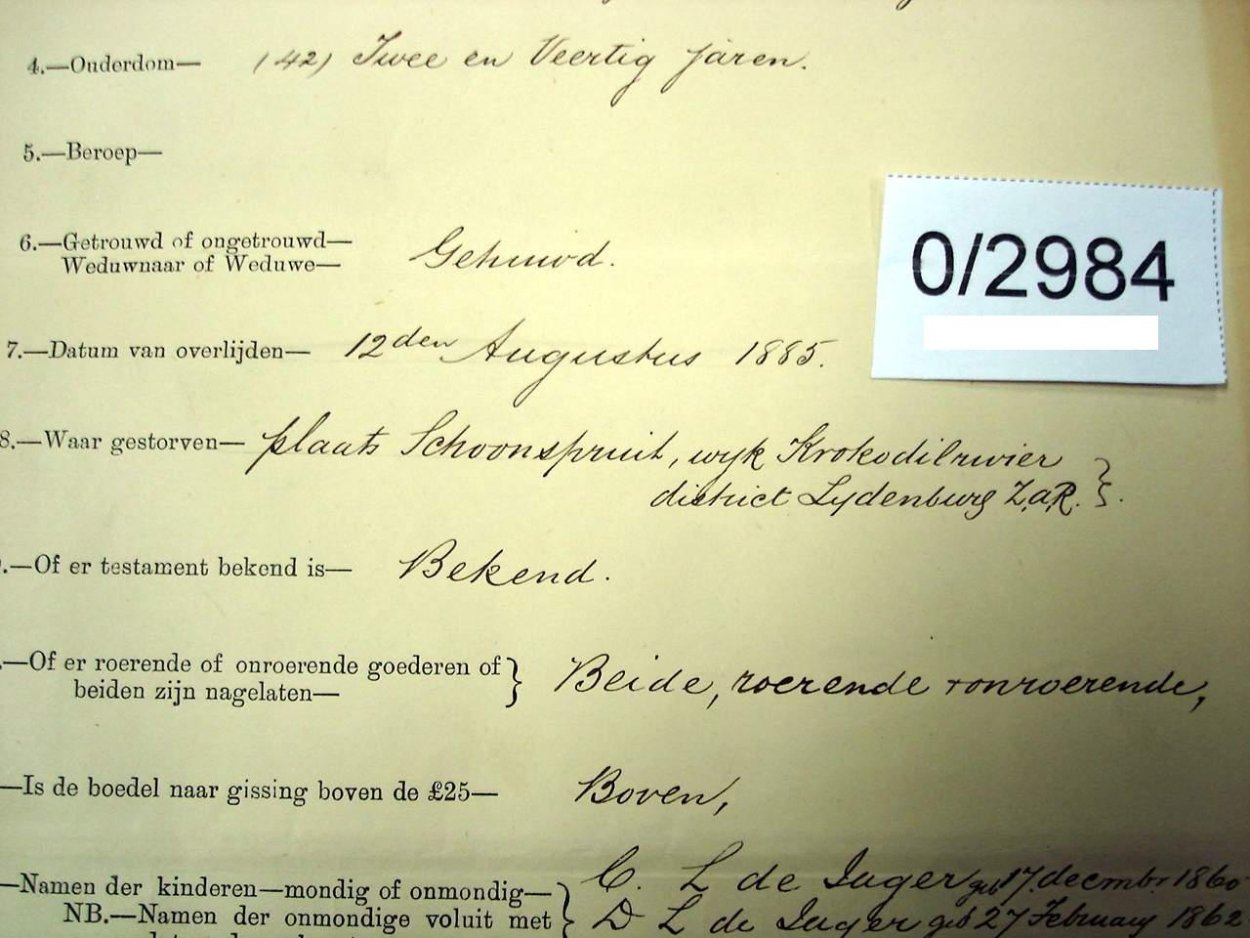 4.—Ouderdom— (42) Twee en Veertig jaren.
5.—Beroep—
6.—Getrouwd of ongetrouwd—
Weduwnaar of Weduwe— Gehuwd.
0/2984
7.—Datum van overlijden— 12den Augustus 1885.
8.—Waar gestorven— plaats Schoonspruit, wyk Krokodilrivier
district Lydenburg Z.a.R. }.
.—Of er testament bekend is— Bekend.
.—Of er roerende of onroerende goederen of }
beiden zijn nagelaten— Beide, roerende + onroerende,
—Is de boedel naar gissing boven de £25— Boven,
—Namen der kinderen—mondig of onmondig— } C. L de Jager geb 17 decmbr 1860
NB.—Namen der onmondige voluit met D L de Jager geb 27 February 1862